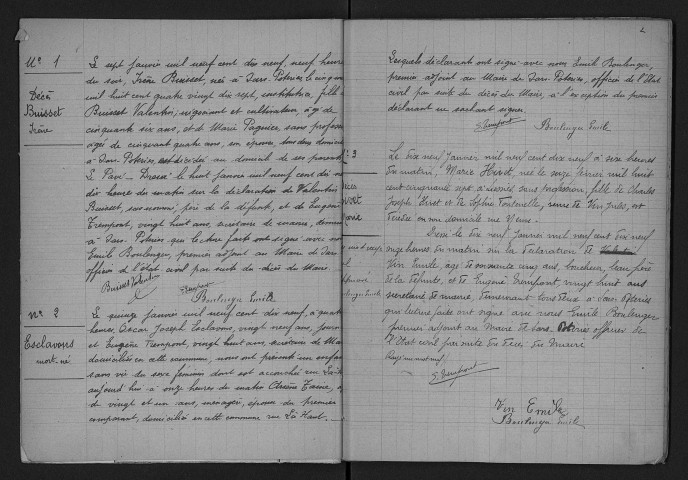 N° 1
Décès
Buisset
Irène
Le sept janvier mil neuf cent dix neuf, neuf heures
du soir, Irène Buisset, née à Sars-Poteries le cinq
mil huit cent quatre vingt dix sept, institutrice, fille de
Buisset Valentin, négociant et cultivateur, âgé de
cinquante six ans, et de Marie Pagnier, sans profession
âgée de cinquante quatre ans, son épouse, tous deux domiciliés
à Sars-Poteries, est décédée au domicile de ses parents
Le Pavé. Dressé le huit janvier mil neuf cent dix neuf
dix heures du matin sur la déclaration de Valentin
Buisset, susnommé, père de la défunte, et de Eugène
Trempont, vingt huit ans, secrétaire de mairie, domicilié
à Sars-Poteries qui lecture faite ont signé avec nous
Emile Boulenger, premier adjoint au Maire de Sars
officier d'état civil par suite du décès du Maire
Buisset Valentin
E. Trempont
Boulenger Emile
N° 2
Esclavons
mort-né
Le quinze janvier mil neuf cent dix neuf, à quatre
heures, Oscar Joseph Esclavons, vingt neuf ans,
et Eugène Trempont, vingt huit ans, secrétaire de Mairie
domiciliés en cette commune, nous ont présenté un enfant
sans vie du sexe féminin dont est accouchée
aujourd'hui à onze heures du matin
de vingt et un ans, ménagère, épouse du premier
comparant, domiciliée en cette commune rue Là Haut.
2
Lesquels déclarants ont signé avec nous Emile Boulenger,
premier adjoint au Maire de Sars-Poteries, officier de l'Etat
civil par suite du décès du Maire, à l'exception du premier
déclarant ne sachant signer.
E. Trempont
Boulenger Emile
N° 3
Le dix neuf Janvier mil neuf cent dix neuf à seize heures
du matin, Marie Hivet, née le onze février mil huit
cent cinquante sept à sans profession, fille de Charles
Joseph Hivet et de Sophie Fontenelle, veuve de Vin Jules, est
décédée en son domicile rue Neuve.
Dressé le dix neuf Janvier mil neuf cent dix neuf
onze heures du matin sur la déclaration de
Vin Emile, âgé de cinq ans, boucher, beau frère
de la défunte, et de Eugène Trempont, vingt huit ans
secrétaire de mairie, demeurant tous deux à Sars-Poteries
qui lecture faite ont signé avec nous Emile Boulenger
premier adjoint au Maire de Sars-Poteries officier de
l'Etat civil par suite du décès du Maire
E. Trempont
Vin Emile
Boulenger Emile